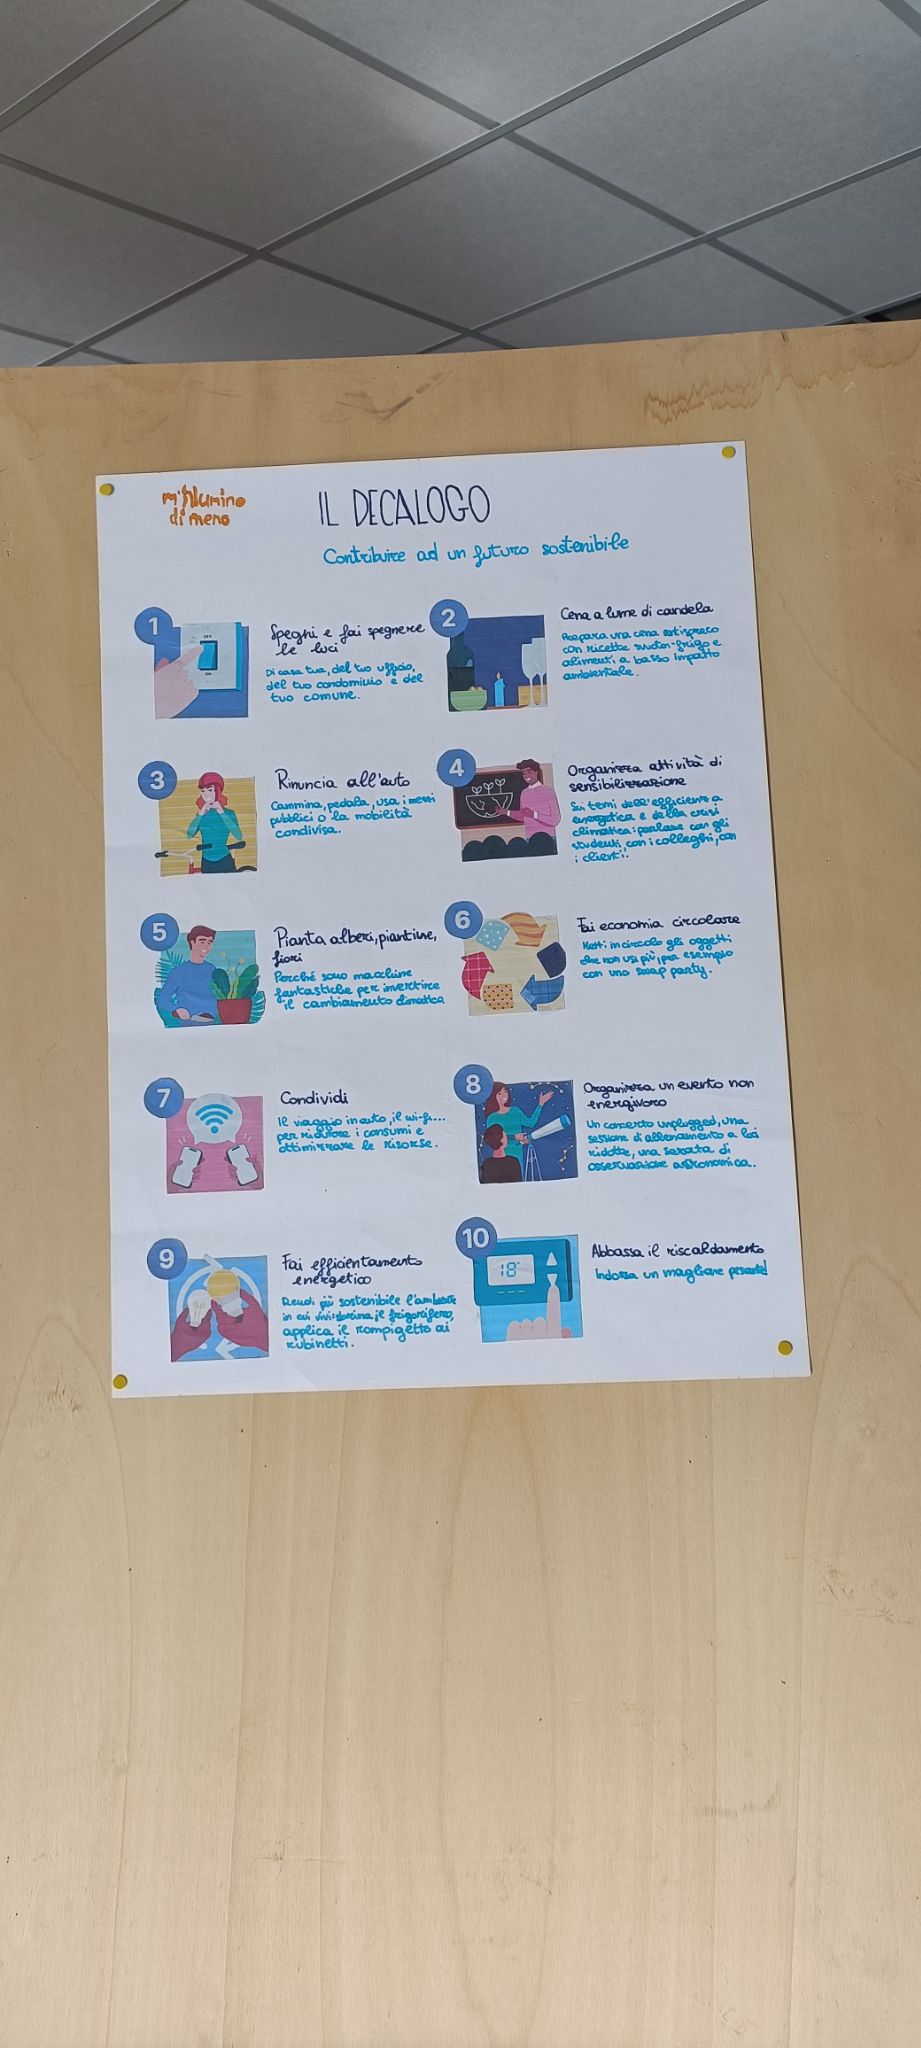 m'illumino
di meno
IL DECALOGO
Contribuire ad un futuro sostenibile
1
OFF
ON
Spegni e fai spegnere
le luci
Di casa tua, del tuo ufficio,
del tuo condominio e del
tuo comune.
2
Cena a lume di candela
Prepara una cena antispreco
con ricette svuota-frigo e
alimenti a basso impatto
ambientale.
3
Rinuncia all'auto
Cammina, pedala, usa i mezzi
pubblici o la mobilità
condivisa.
4
Organizza attività di
sensibilizzazione
Sui temi dell'efficienza
energetica e della crisi
climatica: parlane con gli
studenti, con i colleghi, con
i clienti!
5
Pianta alberi, piantine,
fiori
Perché sono macchine
fantastiche per invertire
il cambiamento climatico
6
Fai economia circolare
Metti in circolo gli oggetti
che non usi più, per esempio
con uno swap party.
7
Condividi
Il viaggio in auto, il wi-fi...
per ridurre i consumi e
ottimizzare le risorse.
8
Organizza un evento non
energivoro
Un concerto unplugged, una
sessione di allenamento a luci
ridotte, una serata di
osservazione astronomica.
9
Fai efficientamento
energetico
Rendi più sostenibile l'ambiente
in cui vivi: sbrina il frigorifero,
applica il rompigetto ai
rubinetti.
10
18°
Abbassa il riscaldamento
Indossa un maglione pesante!